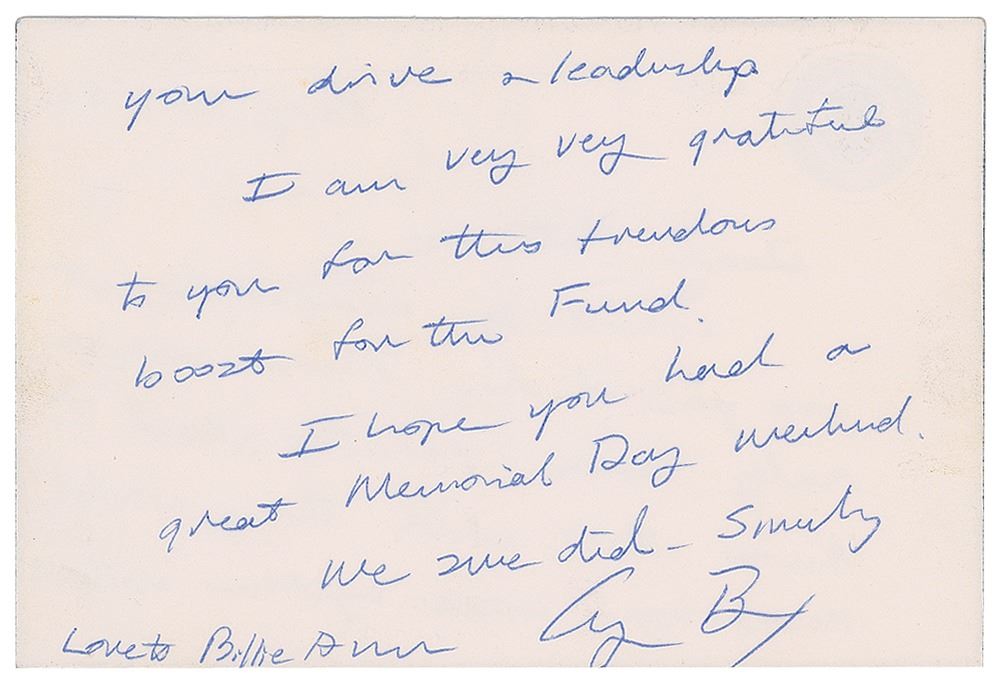 your drive & leadership
I am very very grateful
to you for this tremdous
boost for the Fund.
I hope you had a
great Memorial Day weekend.
We sure did - Sincerely
Love to Billie Ann